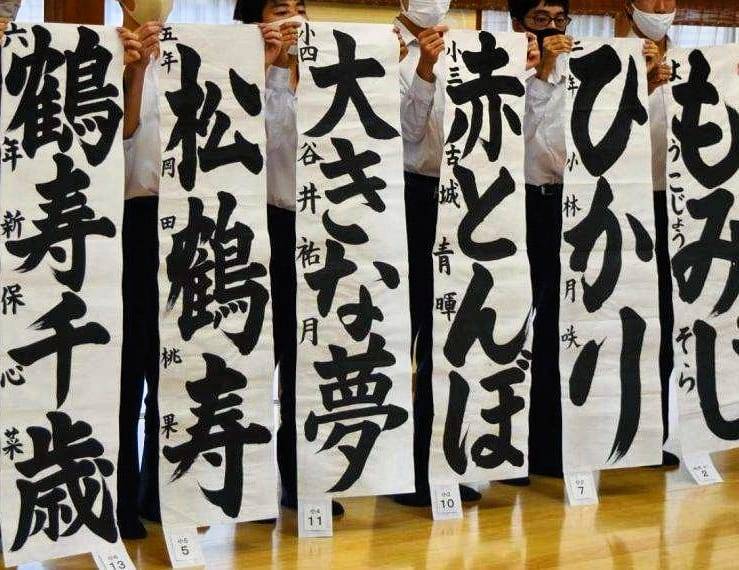 もみじ
ようこじょう そら
2
ひかり
二年 小林月咲
小2
7
赤とんぼ
小三 古城青暉
小3
10
大きな夢
小四 谷井祐月
小4
11
松鶴寿
五年 岡田桃果
小5
5
鶴寿千歳
六年 新保心菜
小6
13